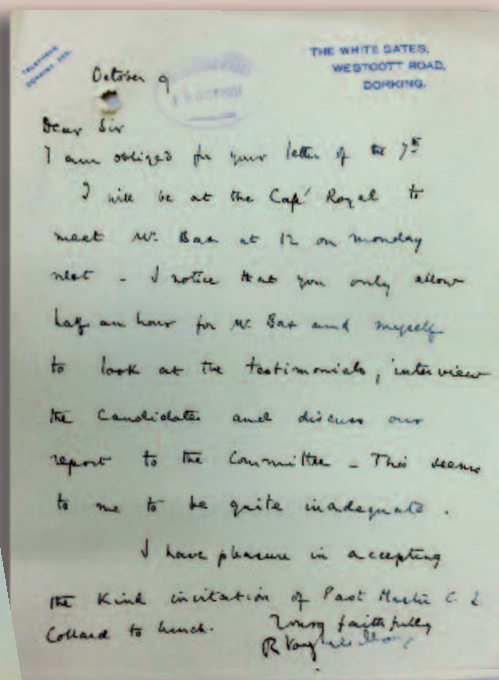 TELEPHONE
DORKING
THE WHITE GATES,
WESTCOTT ROAD,
DORKING.
October 9
OCT 1931
Dear Sir
I am obliged for your letter of the 7th
I will be at the Café Royal to
meet Mr. Bax at 12 on Monday
next - I notice that you only allow
half an hour for Mr. Bax and myself
to look at the testimonials, interview
the Candidates and discuss our
report to the Committee - This seems
to me to be quite inadequate.
I have pleasure in accepting
the kind invitation of Past Master C. L
Collard to lunch.
Yours faithfully
R Vaughan Williams